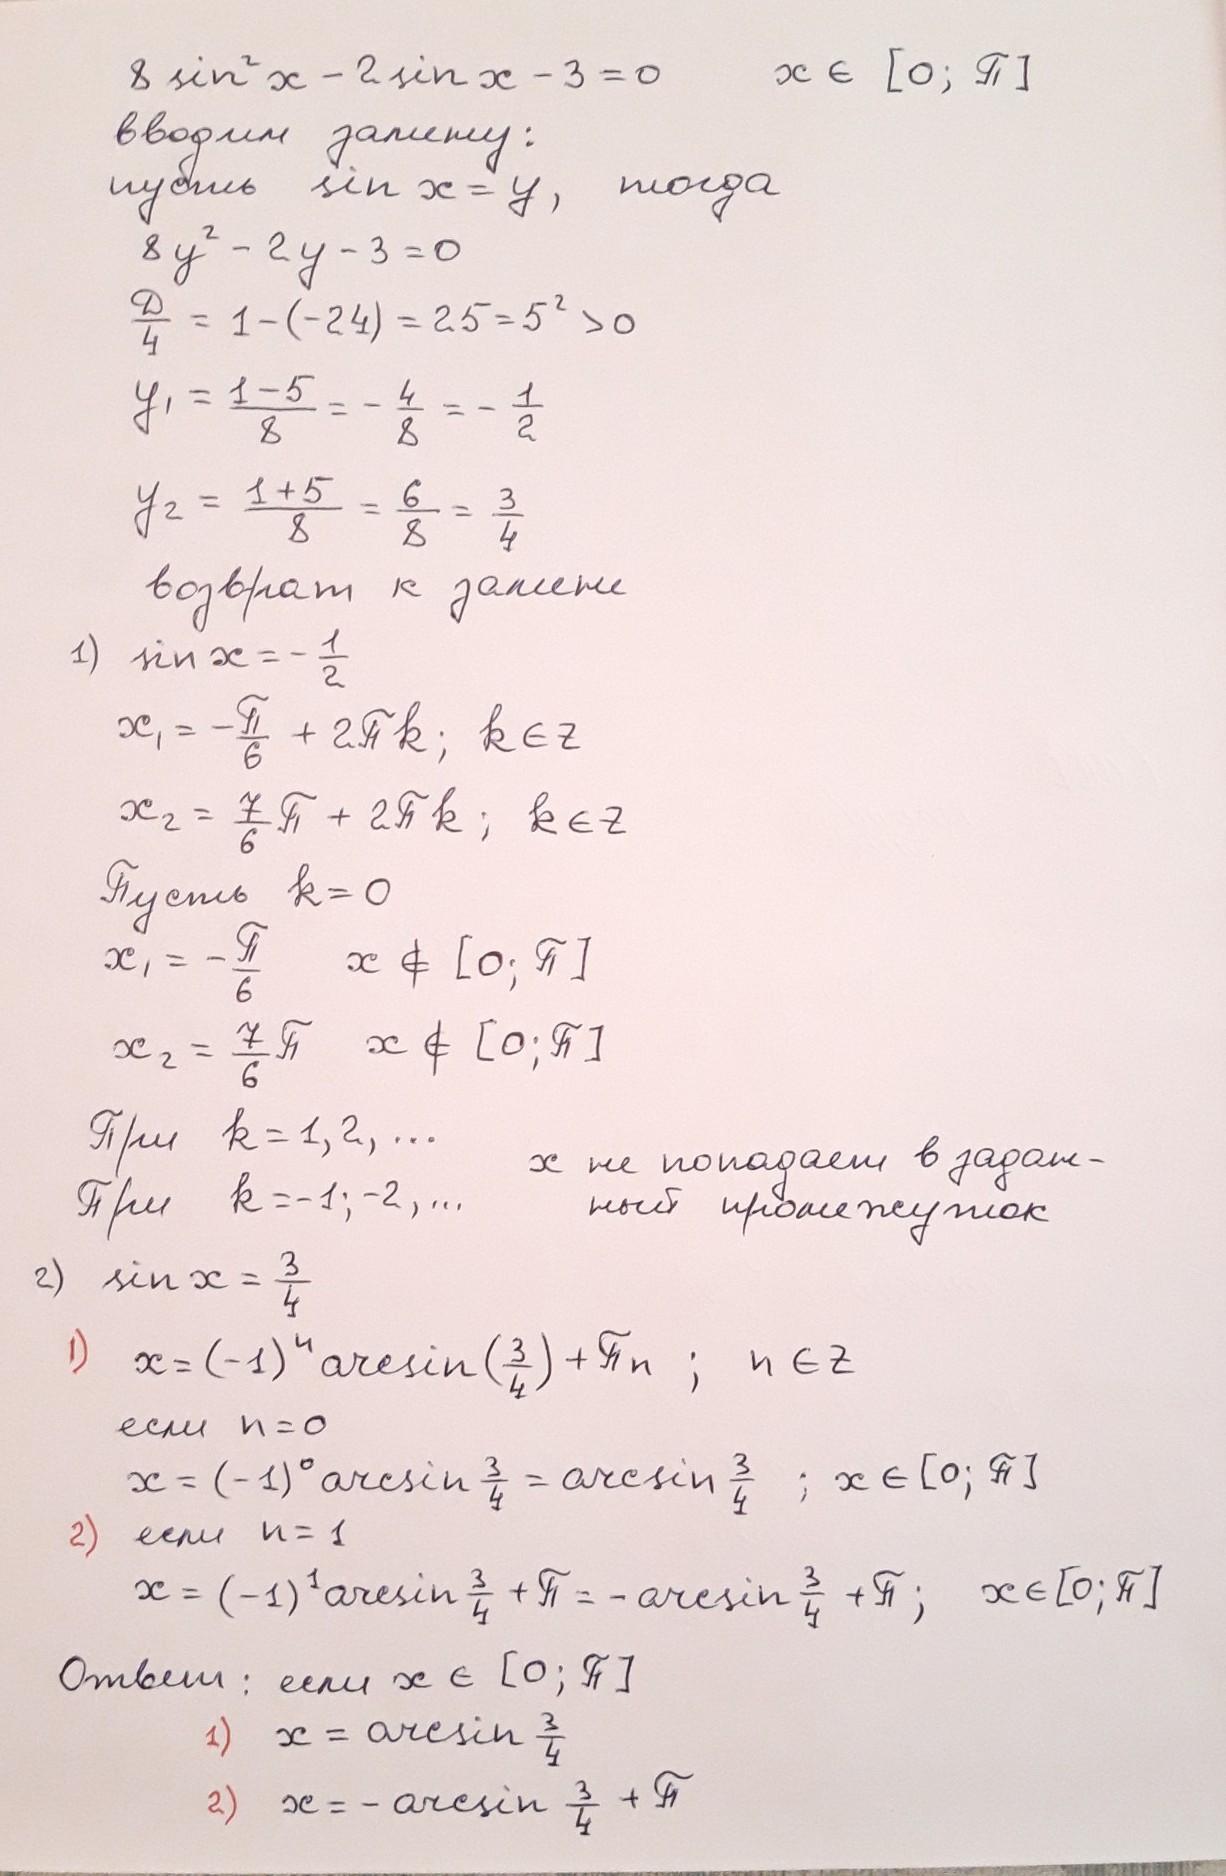 8 sin²x - 2 sin x - 3 = 0 x ∈ [0; π]
вводим замену:
пусть sin x = y, тогда
8y² - 2y - 3 = 0
Д/4 = 1 - (-24) = 25 = 5² > 0
y₁ = (1-5)/8 = - 4/8 = - 1/2
y₂ = (1+5)/8 = 6/8 = 3/4
возврат к замене
1) sin x = - 1/2
x₁ = - π/6 + 2πk; k ∈ z
x₂ = 7/6 π + 2πk; k ∈ z
Пусть k = 0
x₁ = - π/6 x ∉ [0; π]
x₂ = 7/6 π x ∉ [0; π]
При k = 1, 2, ...
При k = -1; -2, ...
x не попадает в задан-
ный промежуток
2) sin x = 3/4
1) x = (-1)ⁿ arcsin (3/4) + πn ; n ∈ z
если n = 0
x = (-1)⁰ arcsin 3/4 = arcsin 3/4 ; x ∈ [0; π]
2) если n = 1
x = (-1)¹ arcsin 3/4 + π = - arcsin 3/4 + π; x ∈ [0; π]
Ответ: если x ∈ [0; π]
1) x = arcsin 3/4
2) x = - arcsin 3/4 + π